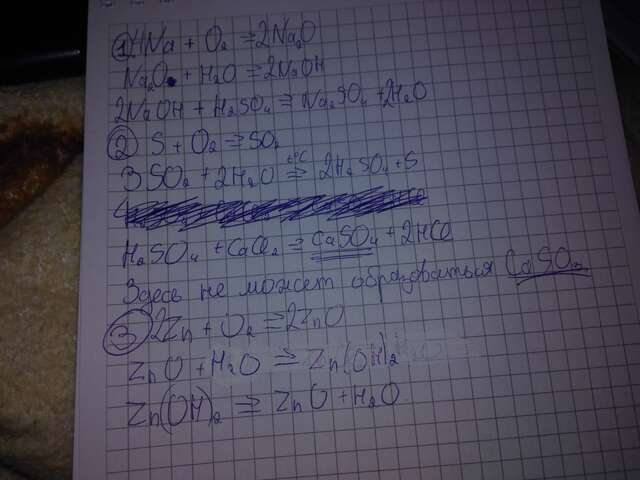 ① 4Na + O₂ = 2Na₂O
Na₂O + H₂O = 2NaOH
2NaOH + H₂SO₄ = Na₂SO₄ + 2H₂O
② S + O₂ = SO₂
3SO₂ + 2H₂O =(t°C) 2H₂SO₄ + S
H₂SO₄ + CaCl₂ = CaSO₄ + 2HCl
Здесь не может образоваться CaSO₃
③ 2Zn + O₂ = 2ZnO
ZnO + H₂O = Zn(OH)₂
Zn(OH)₂ = ZnO + H₂O